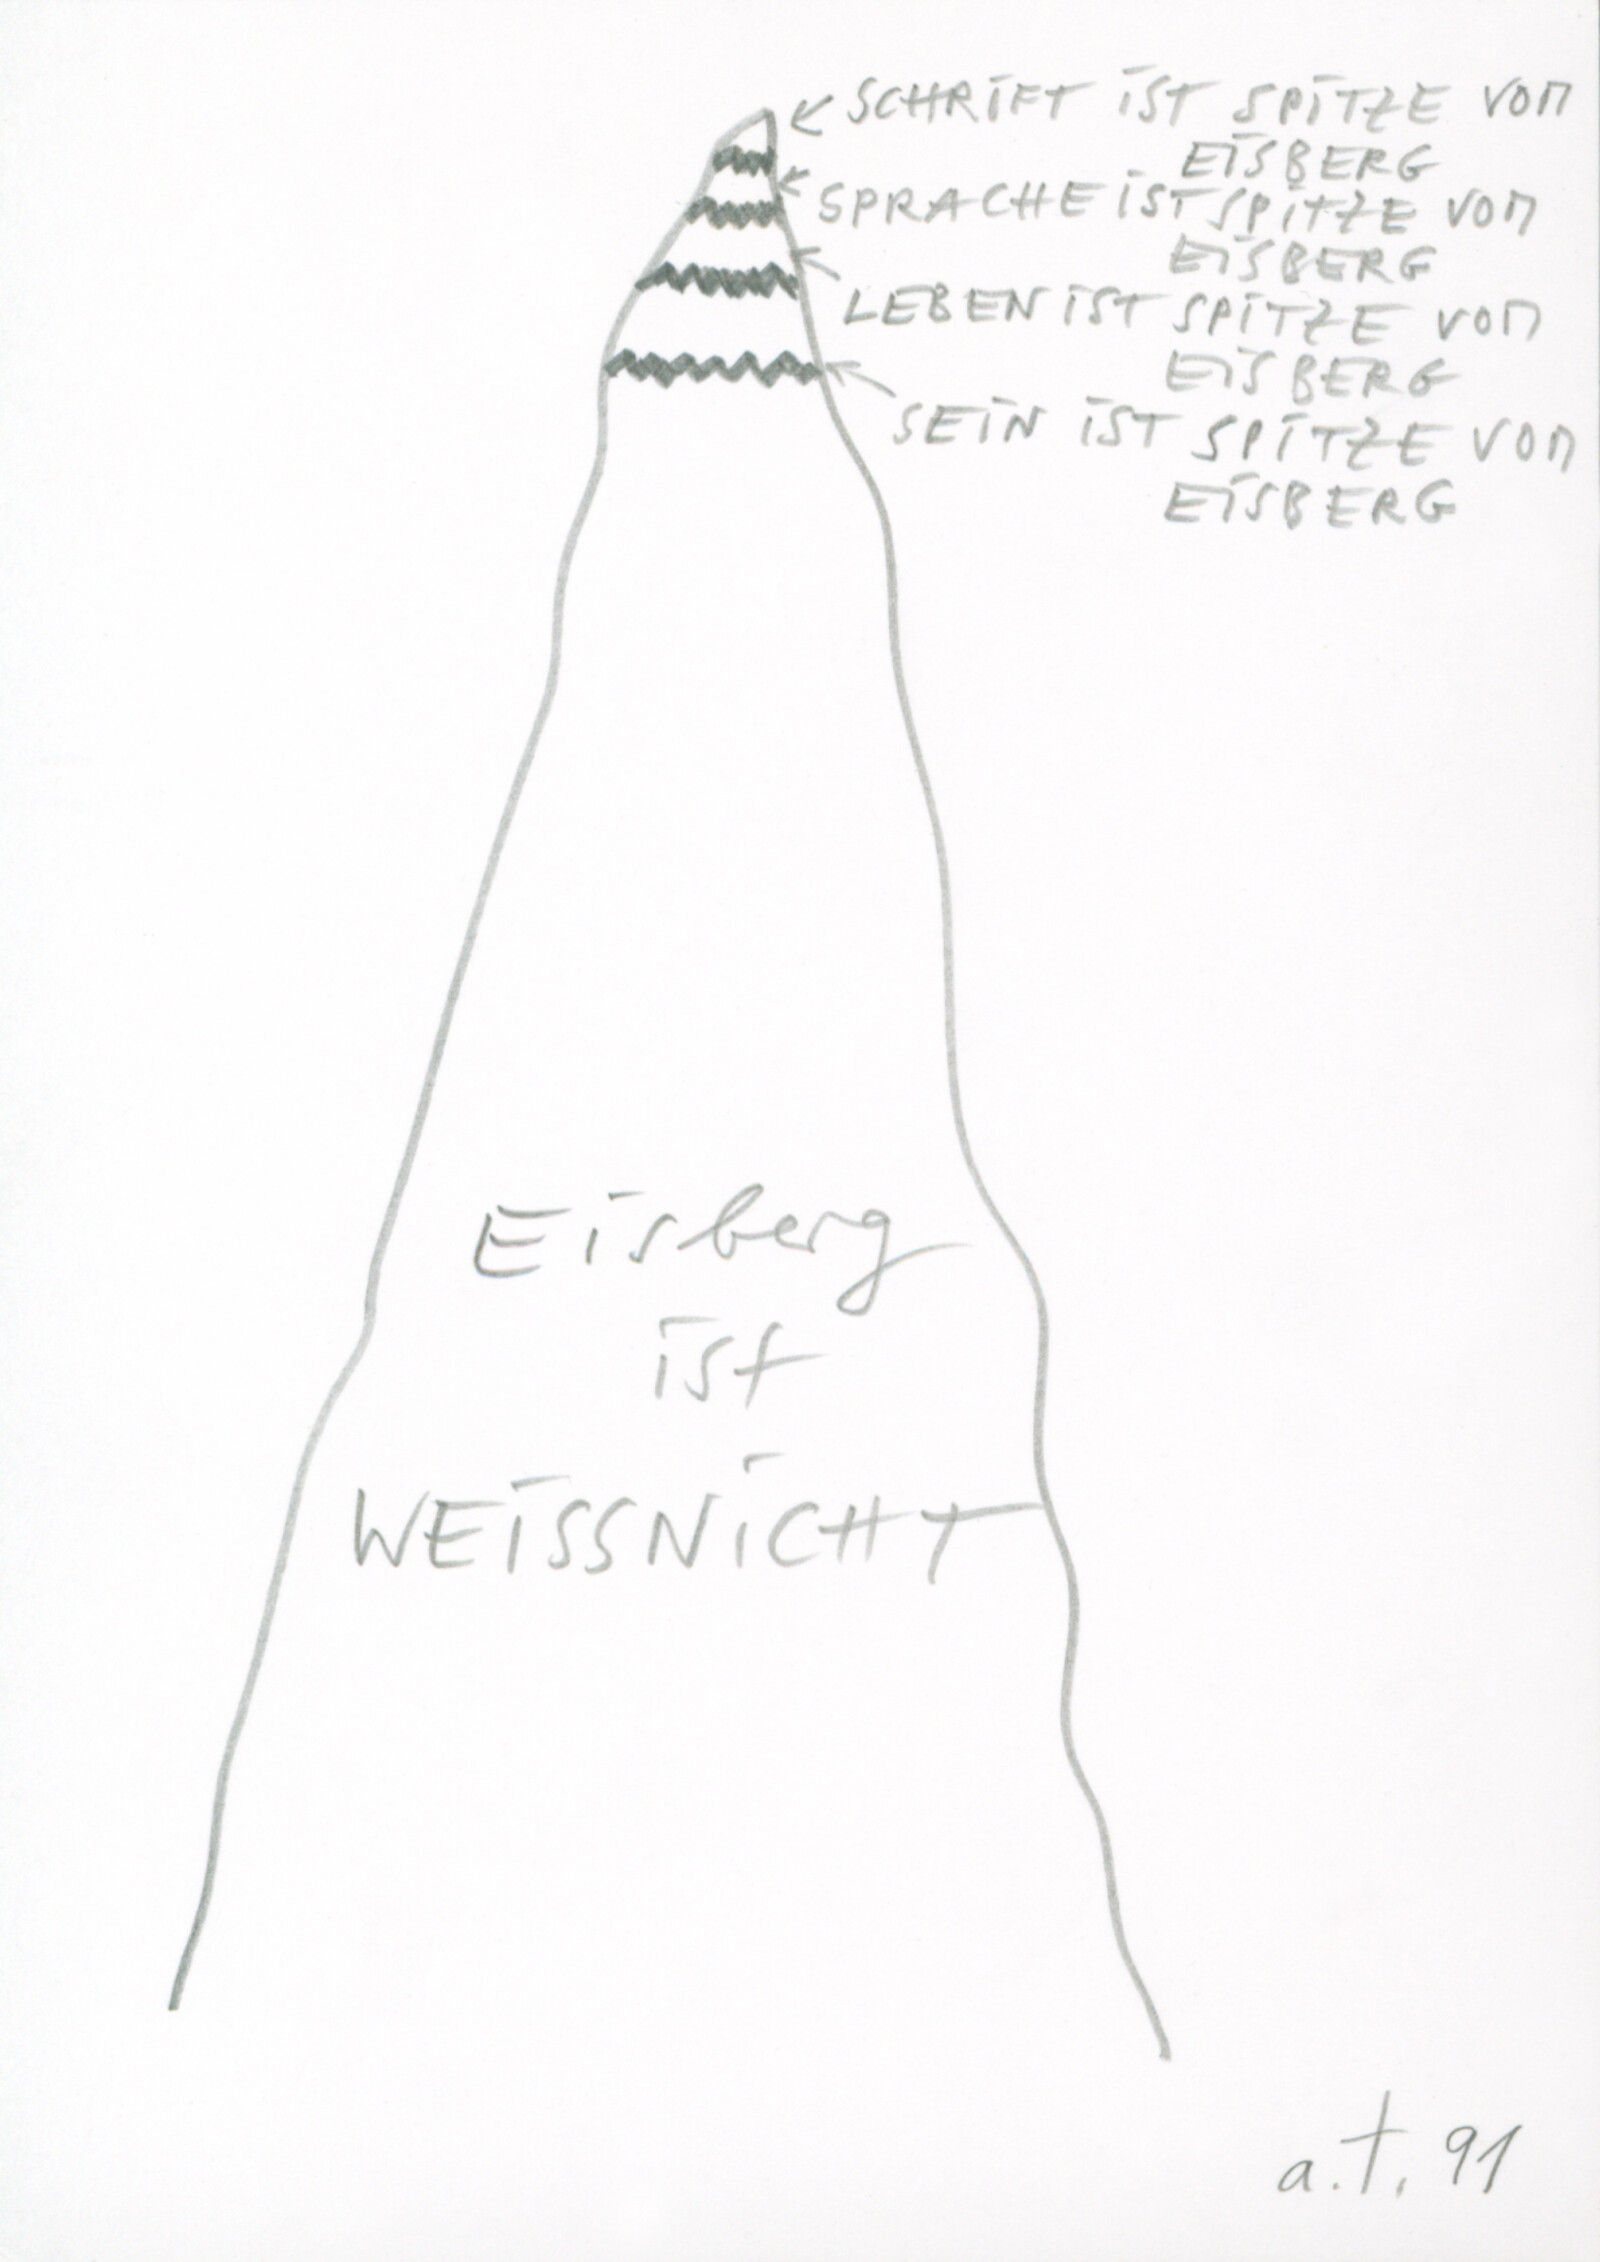 SCHRIFT IST SPITZE VON
EISBERG
SPRACHE IST SPITZE VON
EISBERG
LEBEN IST SPITZE VON
EISBERG
SEIN IST SPITZE VON
EISBERG
Eisberg
ist
WEISSNICHT
a.t. 91